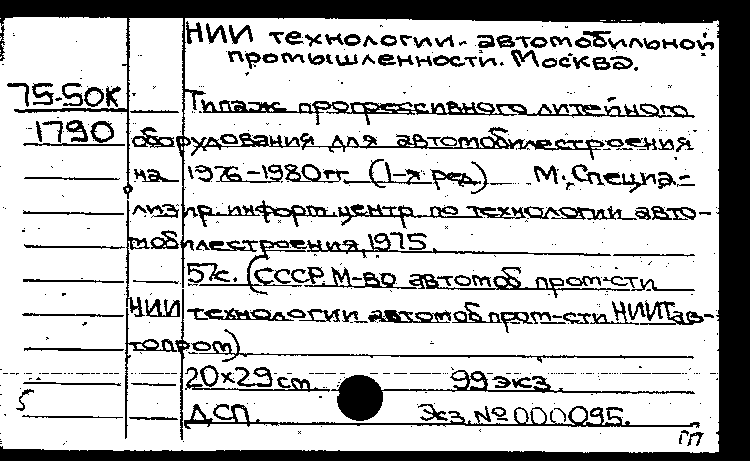 НИИ технологии автомобильной
промышленности. Москва.
75-50К Типаж прогрессивного литейного
1790 оборудования для автомобилестроения
на 1976-1980 гг. (1-я ред.) М., Специа-
лизир. информ. центр по технологии авто-
мобилестроения, 1975.
57с. (СССР. М-во автомоб. пром-сти
НИИ технологии автомоб. пром-сти НИИТав-
топром)
20×29 см. 99 экз.
5 ДСП. Экз. № 000095.
ГП